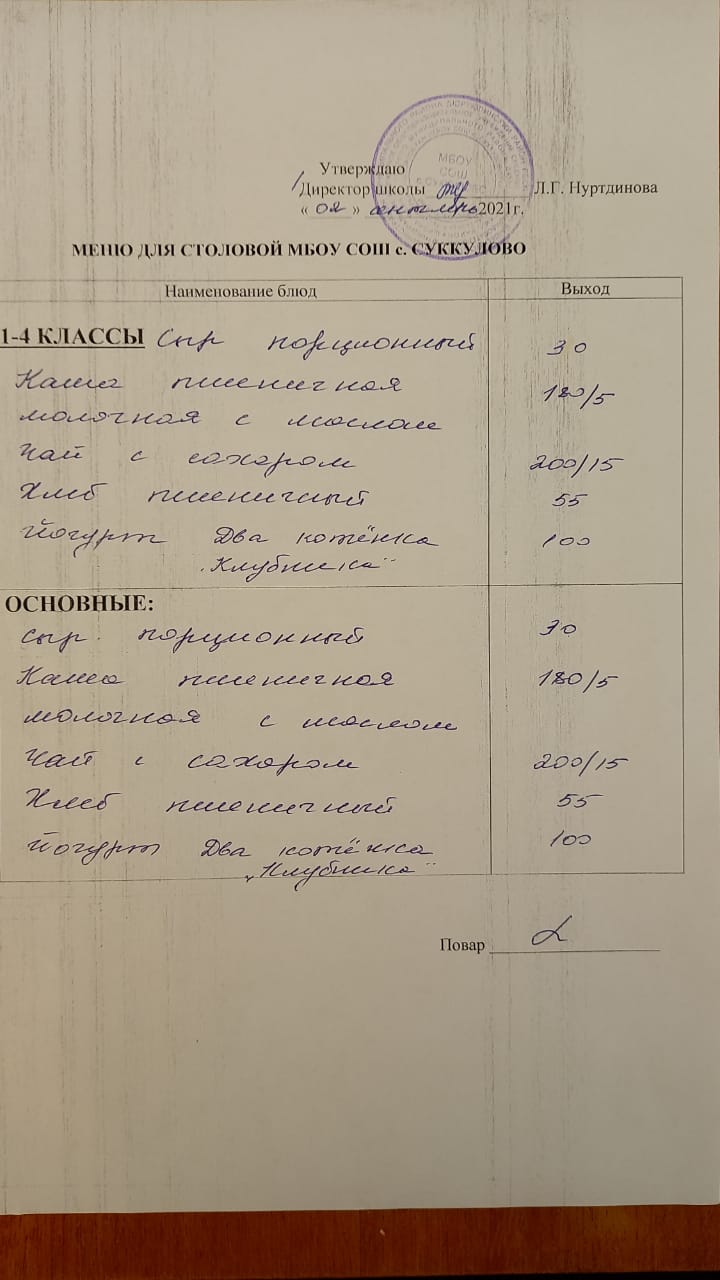 МБОУ
СОШ
Утверждаю
Директор школы Л.Г. Нуртдинова
« 02 » сентябрь 2021г.
МЕНЮ ДЛЯ СТОЛОВОЙ МБОУ СОШ с. СУККУЛОВО
Наименование блюд Выход
1-4 КЛАССЫ Сыр порционный 30
Каша пшеничная 180/5
молочная с маслом
Чай с сахаром 200/15
Хлеб пшеничный 55
Йогурт Два котёнка 100
„Клубника“
ОСНОВНЫЕ:
Сыр порционный 30
Каша пшеничная 180/5
молочная с маслом
Чай с сахаром 200/15
Хлеб пшеничный 55
Йогурт Два котёнка 100
„Клубника“
Повар